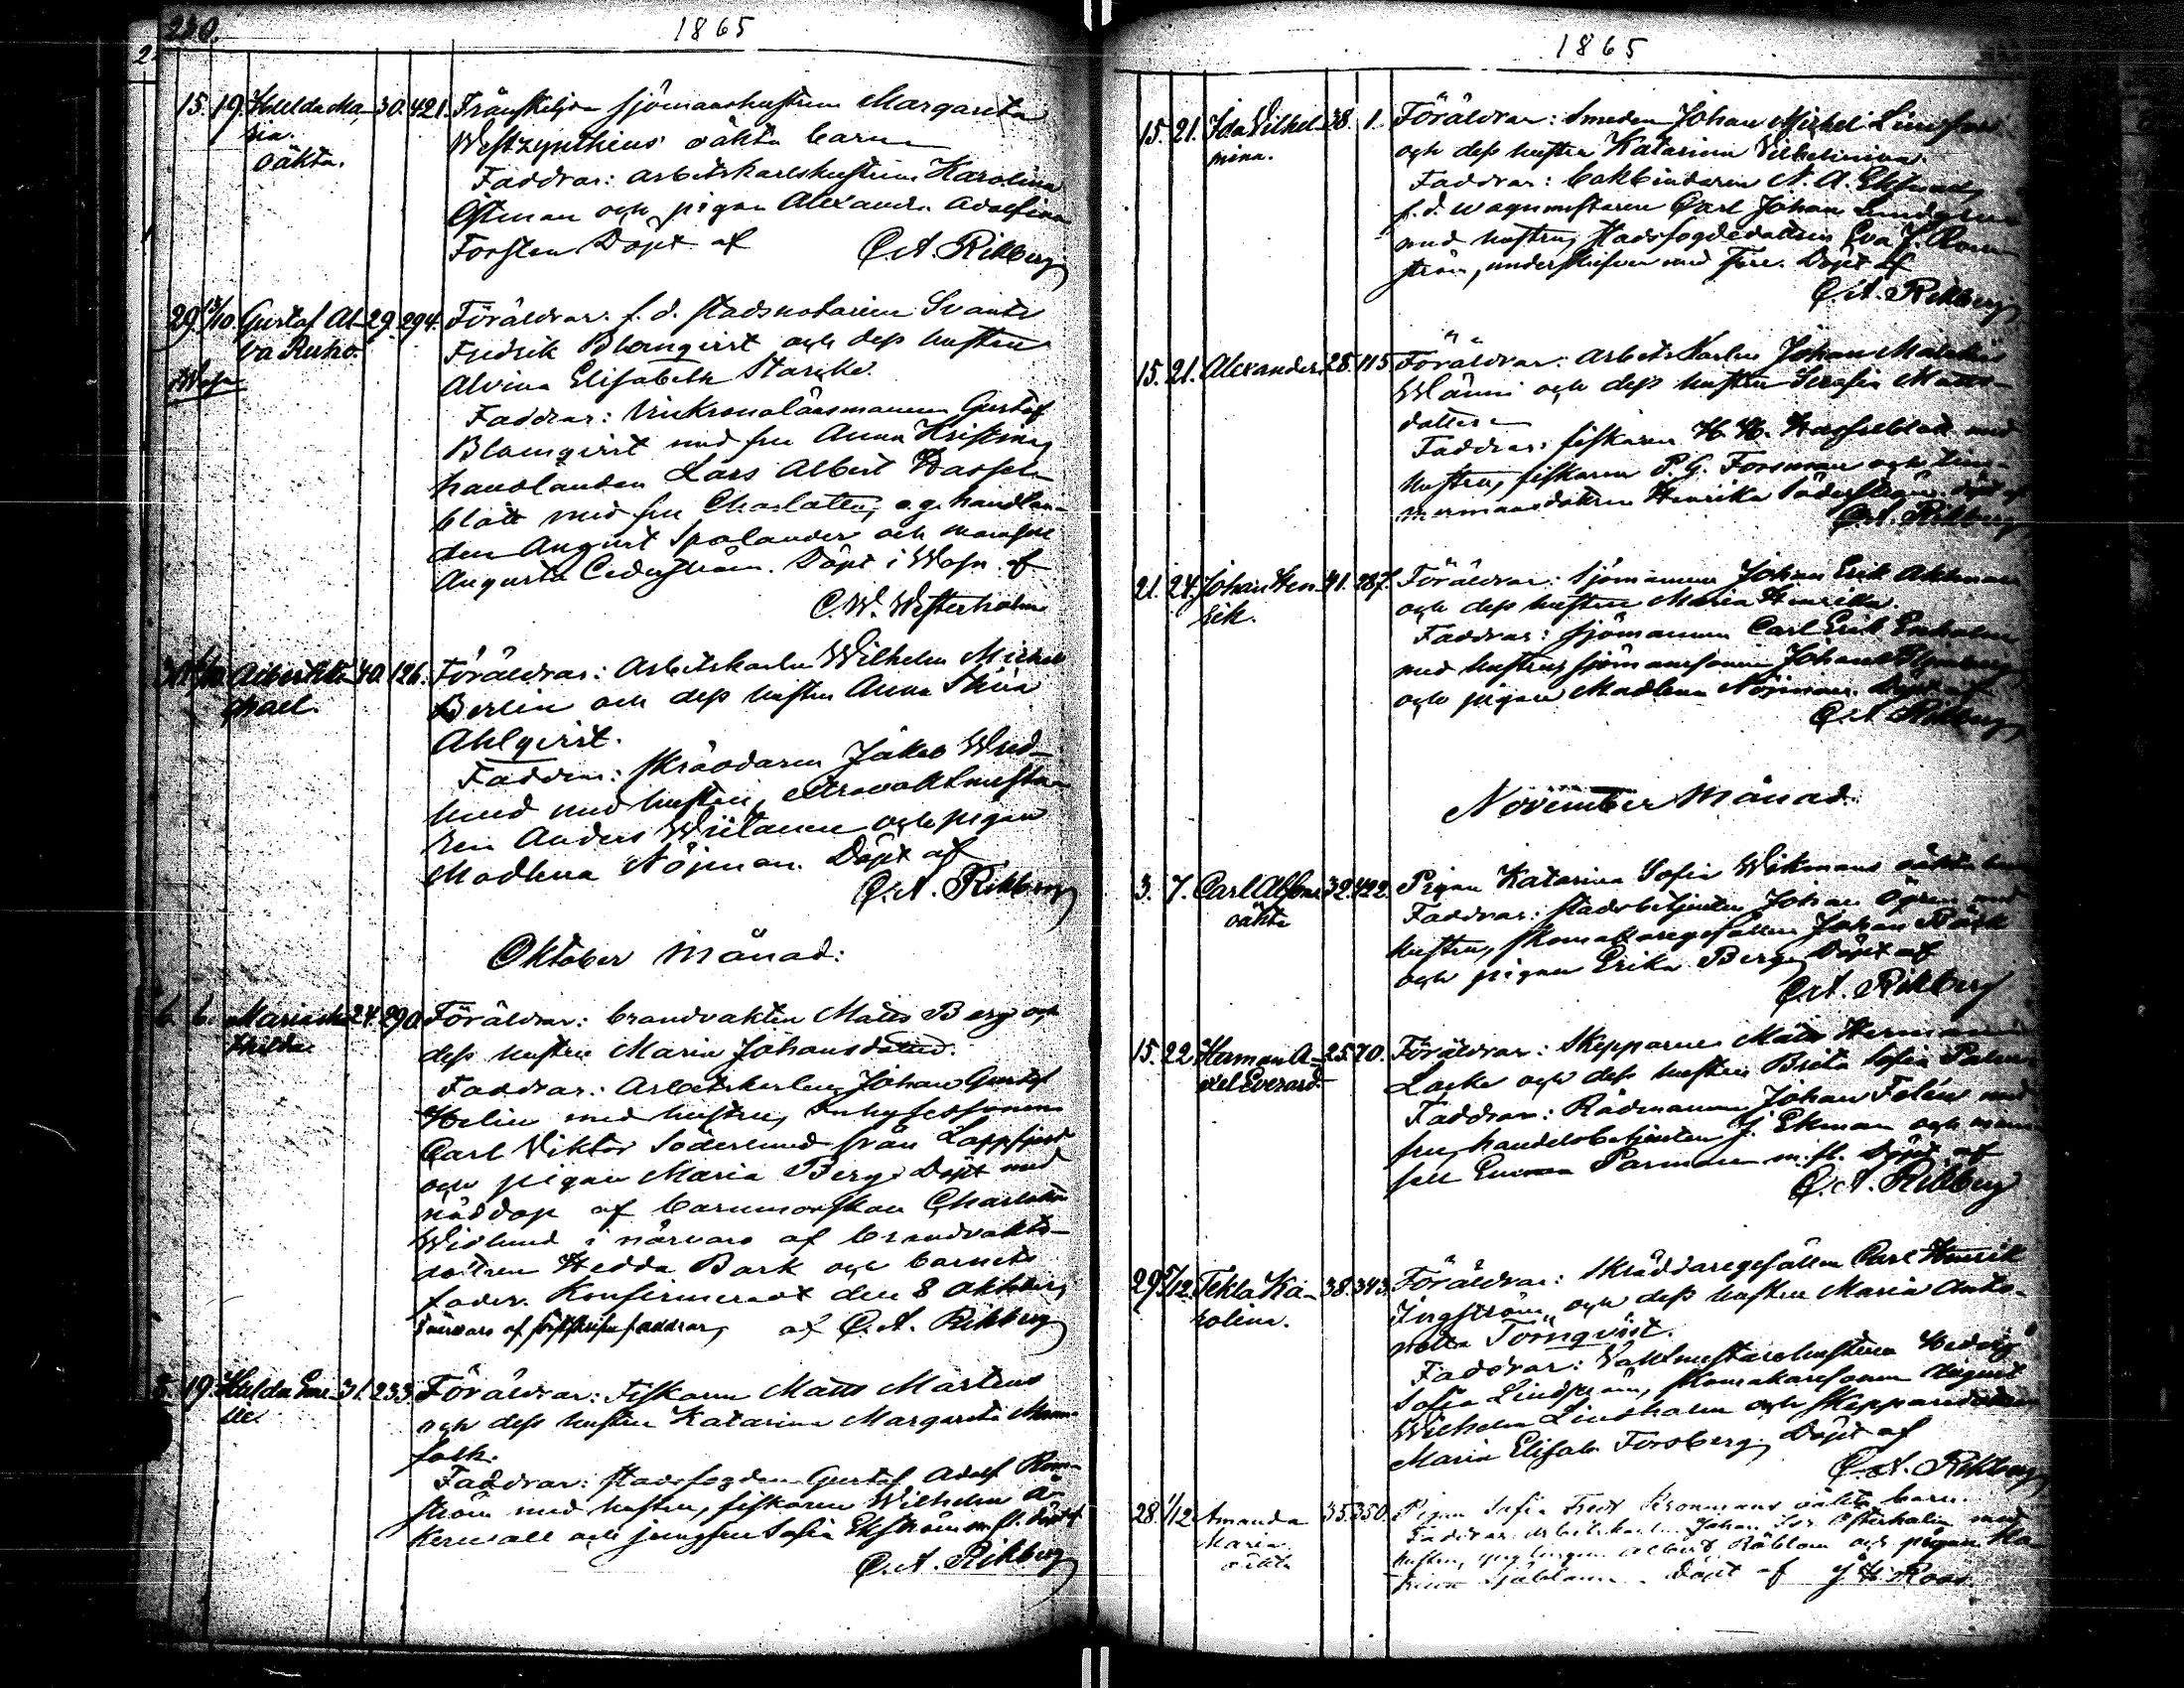 230.
1865
2.
15. 19. Hulda Ma- 30. 421. Frånskiljda sjömanshustrun Margareta
ria. Westzynthius' oäkta barn
oäkta. Faddrar: arbetskarlshustrun Karolina
Östman och pigan Alexandra Adolfina
Forsten Döpt af
C. A. Rikberg
29. 10. Gustaf Al- 29. 294. Föräldrar: f. d. stadsnotarien Svante
va Fredrik Blomqvist och dess hustru
Wasa Alvina Elisabeth Starcke.
Faddrar: Gustaf
Blomqvist med fru Anna Kristina,
handlanden Lars Albert Hassel-
blatt med fru Charlotta, e. g. handlan-
den August Spolander och mamsell
Augusta Cederström. Döpt i Wasa af
C. W. Westerholm
30. Albert Mi- 40. 126. Föräldrar: Arbetskarlen Wilhelm Mickel
chael. Berlin och dess hustru Anna Stina
Ahlqvist.
Faddrar: skräddaren Jakob Wid-
lund med hustru,
ren Anders Wiitanen och pigan
Madlena Nöjman. Döpt af
C. A. Rikberg
Oktober månad:
6. 6. Maria Ma- 24. 290. Föräldrar: brandvakten Matts Berg och
thilda dess hustru Maria Johansdotter.
Faddrar: Arbetskarlen Johan Gustaf
Helin med hustru, inhysessonen
Carl Viktor Söderlund från Lappfjerd
och pigan Maria Berg. Döpt med
nöddop af barnmorskan Charlotta
Widlund i närvaro af brandvakts-
dottren Hedda Bark och barnets
fader. Konfirmeradt den 8 Oktober,
i närvaro af faddrar, af C. A. Rikberg
8. 19. Hulda Emi- 31. 233. Föräldrar: Fiskaren Matts Mårtens
lie. och dess hustru Katarina Margareta Mann-
folk.
Faddrar: stadsfogden Gustaf Adolf Rom-
ström med hustru, fiskaren Wilhelm Å-
kerwall och jungfrun Sofia Ekström m. fl. Döpt af
C. A. Rikberg
1865
15. 21. Ida Vilhel- 38. 1. Föräldrar: Smeden Johan Mickel
mina. och dess hustru Katarina Vilhelmina.
Faddrar: bokbindaren N. A. Eklund,
f. d. vagnmästaren Carl Johan Lindgren
med hustru, stadsfogdedottren Eva J. Rom-
ström, Döpt af
C. A. Rikberg
15. 21. Alexander. 28. 115. Föräldrar: Arbetskarlen Johan Mattias
Wänni och dess hustru Serafia Matts-
dotter
Faddrar: fiskaren H. H. Hasselblatt med
hustru, fiskaren P. G. Forsman och tim-
mermansdottren Henrika Söderström. Döpt af
C. A. Rikberg
21. 24. Johan Hen- 41. 287. Föräldrar: Sjömannen Johan Erik Ahlman
rik. och dess hustru Maria Henrika.
Faddrar: sjömannen Carl Erik Enholm
med hustru, sjömanssonen Johan
och pigan Madlena Nöjman. Döpt af
C. A. Rikberg
November månad.
3. 7. Carl Alfons 32. 422. Pigan Katarina Sofia Wikmans oäkta barn
oäkta Faddrar: stadsbetjenten Johan Ögren med
hustru, skomakaregesällen Johan Rösk
och pigan Erika Berg. Döpt af
C. A. Rikberg
15. 22. Herman A- 25. 70. Föräldrar: Skepparen Matts Herman
xel Everard. och dess hustru Brita Sofia Palm
Faddrar: Rådmannen Johan Folén med
fru, handelsbetjenten J. Ekman och mam-
sell Emma Parmanen m. fl. Döpt af
C. A. Rikberg
29. 5/12. Tekla Ka- 38. 343. Föräldrar: Skräddaregesällen Carl Henrik
rolina. Ingström och dess hustru Maria Anto-
netta Törnqvist.
Faddrar: Vaktmästarehustrun Hedvig
Sofia Lindström, skomakaresonen August
Wilhelm Lindholm och skepparedottren
Maria Elisab. Forsberg. Döpt af
C. A. Rikberg
28. 1/12 Amanda 35. 350. Pigan Sofia Fredr. Kronmans oäkta barn
Maria Faddrar: arbetskarlen Johan Österholm med
oäkta hustru, ynglingen Albert Råblom och pigan Ma-
Sjöblom. Döpt af J. H. Roos.